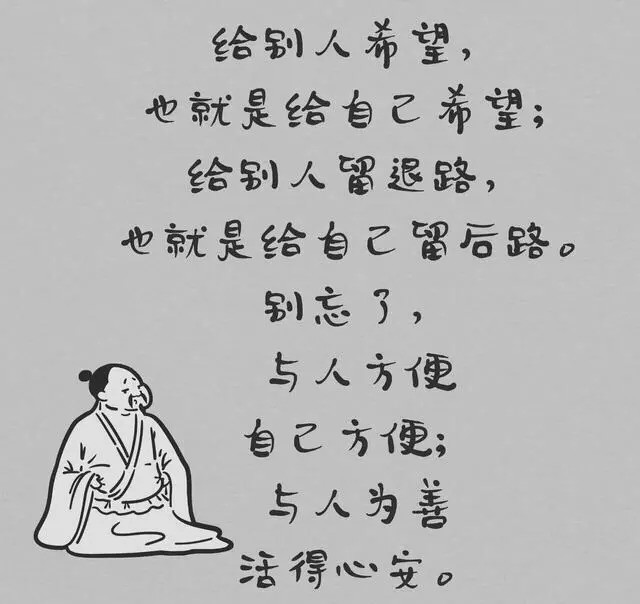 给别人希望，
也就是给自己希望；
给别人留退路，
也就是给自己留后路。
别忘了，
与人方便
自己方便；
与人为善
活得心安。